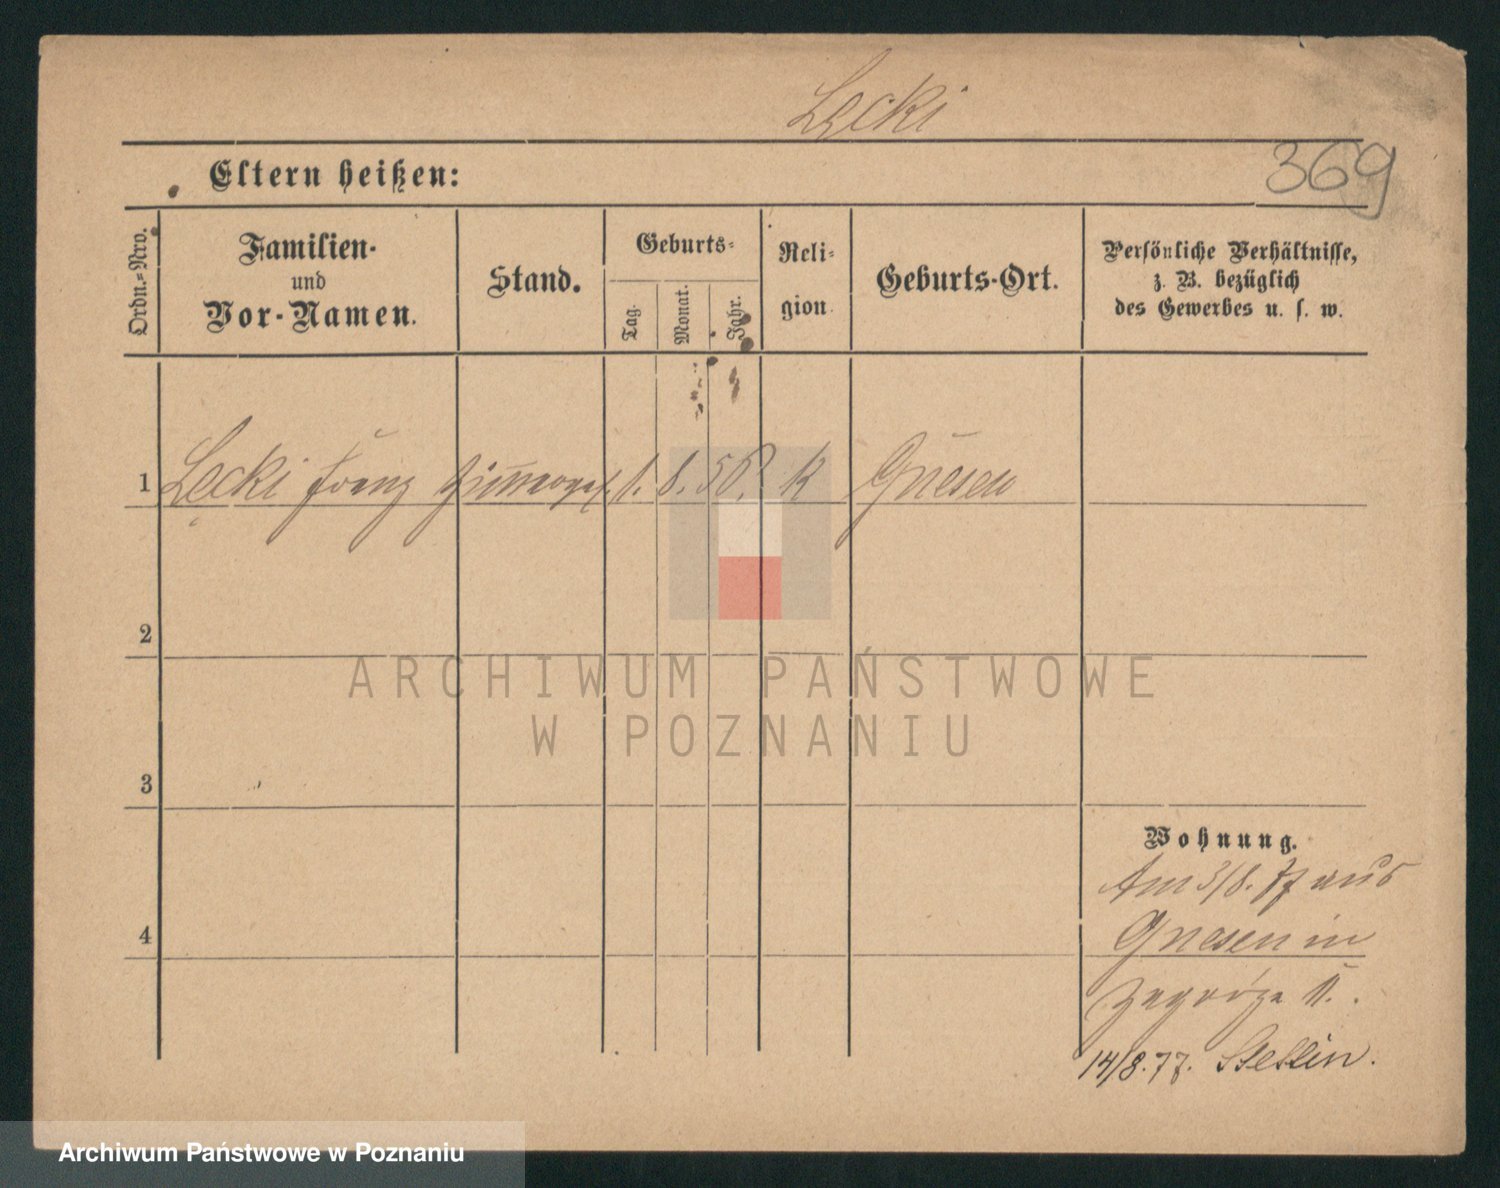 Lęcki
369
Eltern heißen:
Ordn.=Nro.
Familien-
und
Vor-Namen.
Stand.
Geburts-
Tag.
Monat.
Jahr.
Reli-
gion.
Geburts-Ort.
Persönliche Verhältnisse,
z. B. bezüglich
des Gewerbes u. s. w.
1 Lęcki Franz 1. 8. 58. K Gnesen
2
3
4
Wohnung.
Am 3/8. 77 aus
Gnesen in
Zagórze 11.
14/8.77. Stettin.
ARCHIWUM PAŃSTWOWE
W POZNANIU
Archiwum Państwowe w Poznaniu